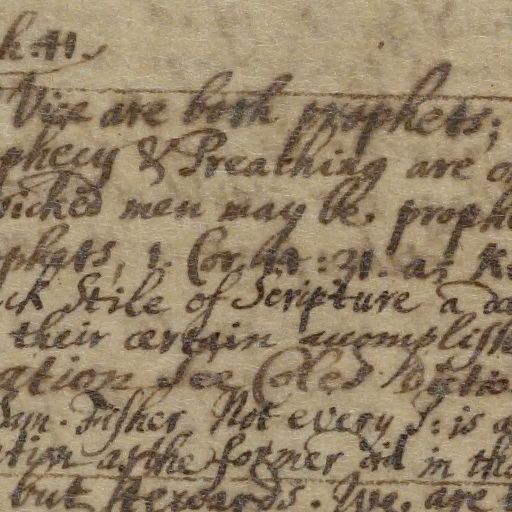 k. 41.
Vice are both prophets;
phecy & Preaching are of
wicked men may be. prophe
phets, 1. Cor. 14: 31. as K
ck Stile of Scripture a da
their certain accomplish
ation See Coles Dictio
Sam. Fisher, Not every S: is a
ation as the former did in tha
but stewards. We, are